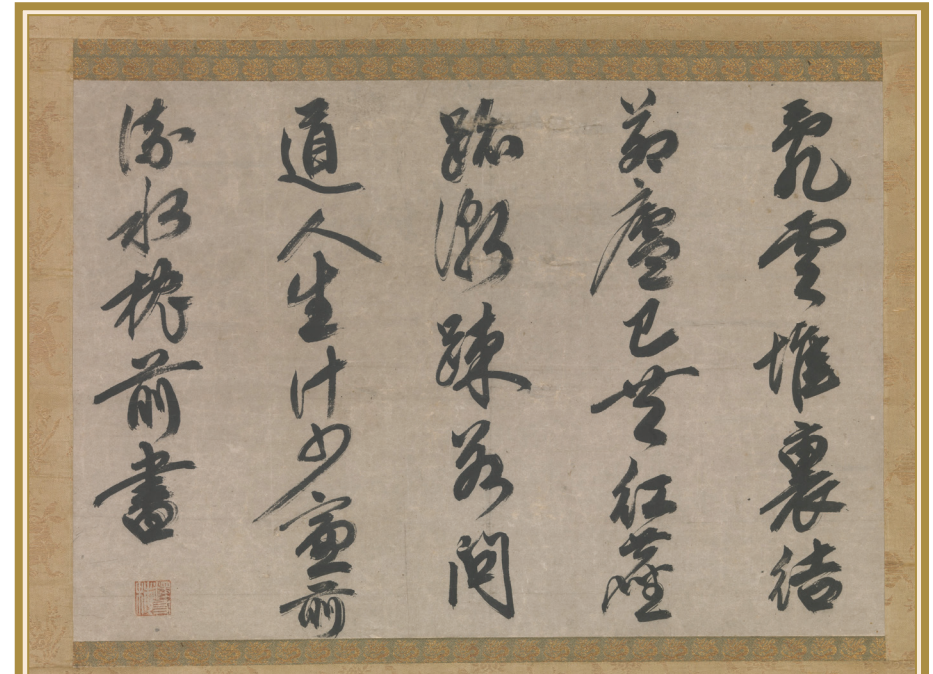 亂雲堆裏結
茆廬已共紅塵
跡漸疎若問
道人生計少窗前
流水枕前書